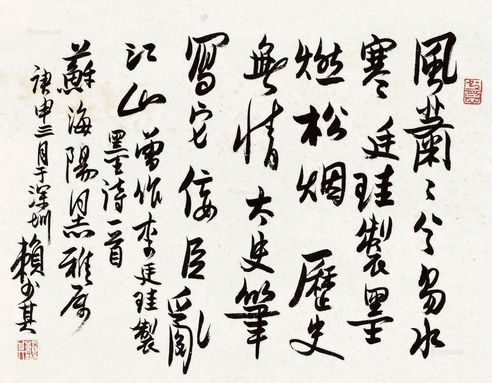 風蕭〻兮易水
寒廷珪製墨
燃松烟歷史
無情太史筆
寫它佞臣亂
江山曾作李廷珪製
墨詩一首
蘇海陽同志雅属
庚申三月于深圳賴少其